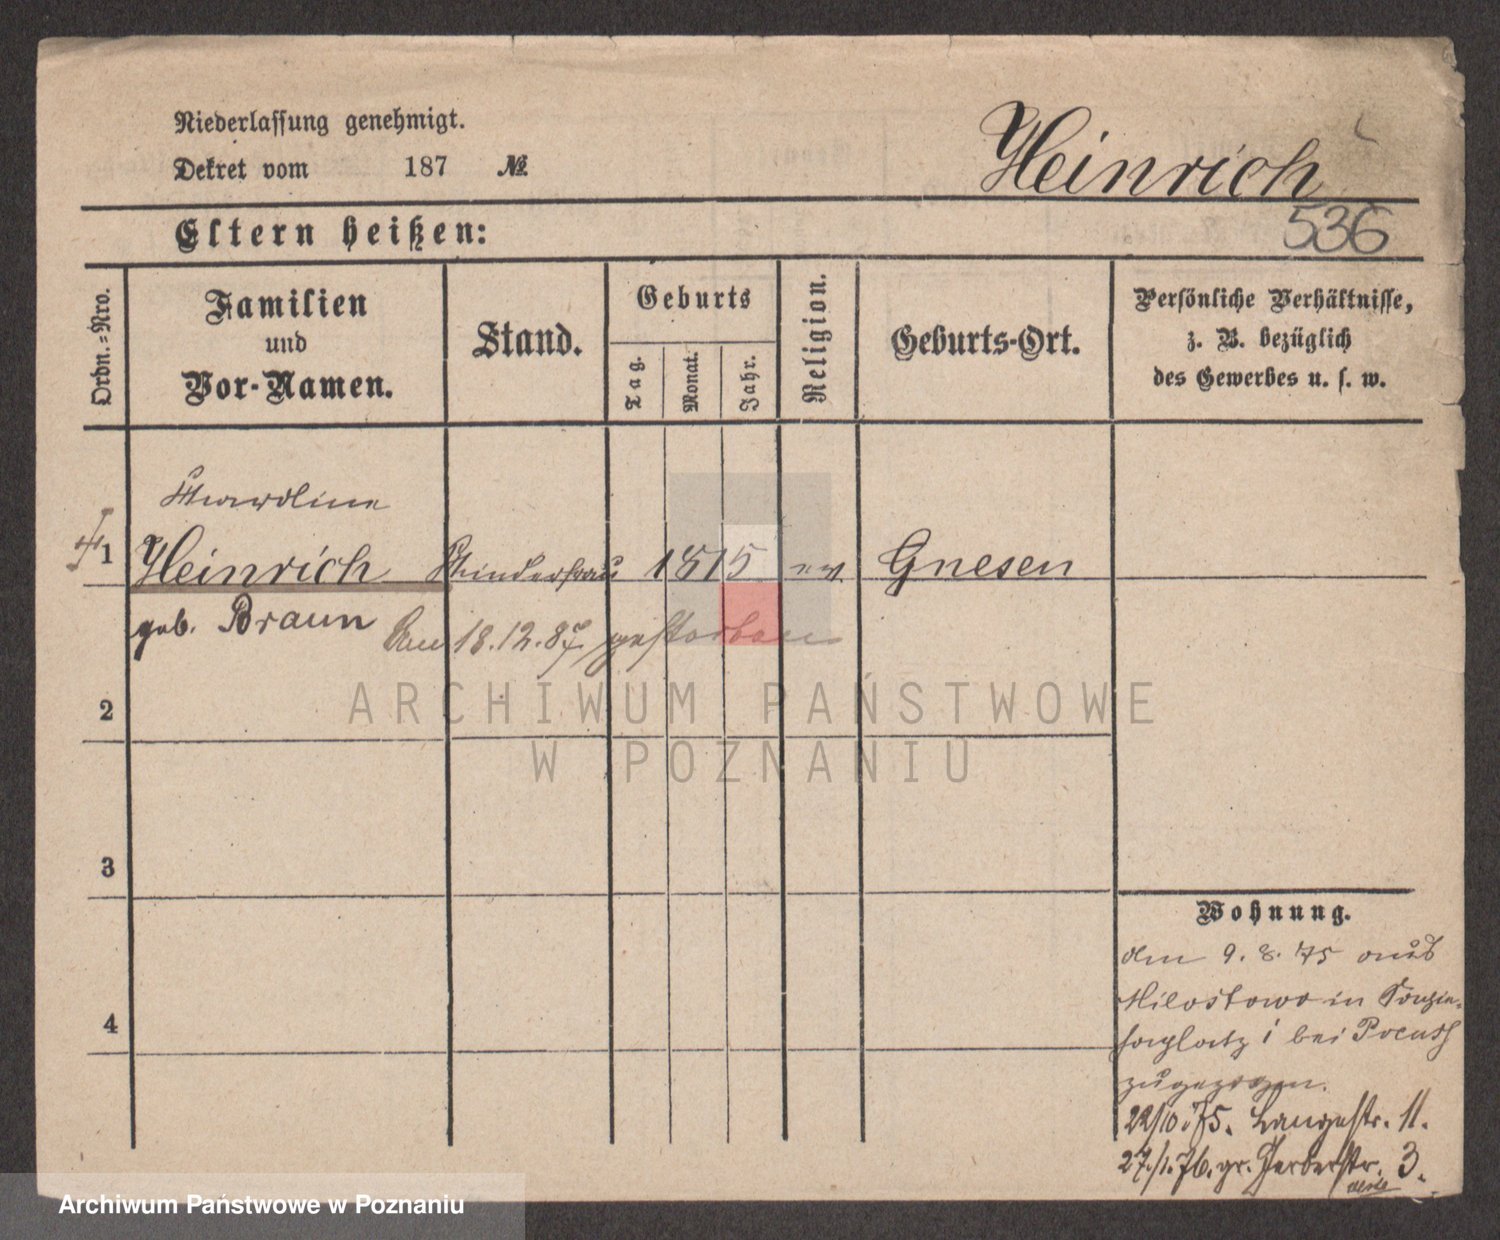 Niederlassung genehmigt.
Dekret vom 187 №
Heinrich
536
Eltern heißen:
Ordn.-Nro.
Familien
und
Vor-Namen.
Stand.
Geburts
Tag.
Monat.
Jahr.
Religion.
Geburts-Ort.
Persönliche Verhältnisse,
z. B. bezüglich
des Gewerbes u. s. w.
1
Heinrich
1815
ev.
Gnesen
geb. Braun
18.12.87 gestorben
2
3
4
Wohnung.
den 9. 8. 75 aus
Milostowo in
bei
zugezogen.
22/10.75. Langestr. 11.
27./1.76. gr. Gerberstr. 3.
ARCHIWUM PAŃSTWOWE
W POZNANIU
Archiwum Państwowe w Poznaniu